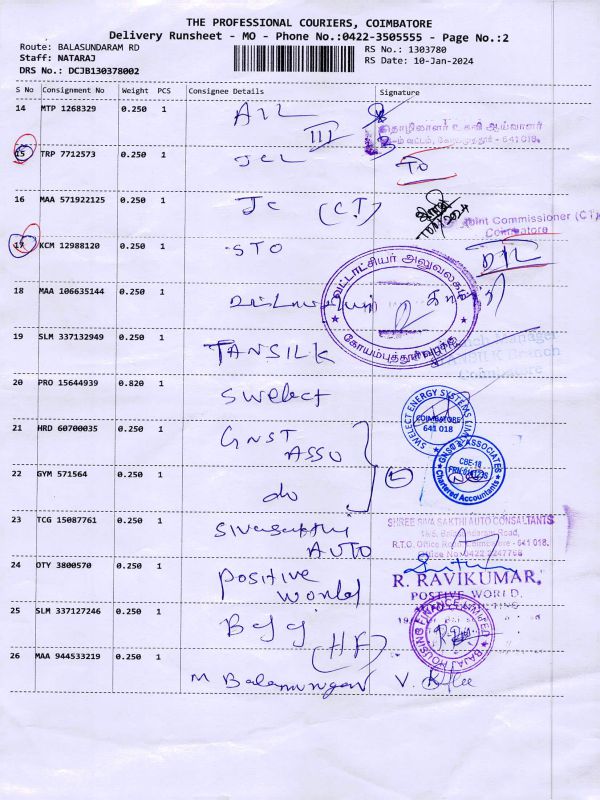 THE PROFESSIONAL COURIERS, COIMBATORE
Delivery Runsheet - MO - Phone No.:0422-3505555 - Page No.:2
Route: BALASUNDARAM RD
RS No.: 1303780
Staff: NATARAJ
RS Date: 10-Jan-2024
DRS No.: DCJB130378002
S No Consignment No Weight PCS Consignee Details Signature
14 MTP 1268329 0.250 1
தொழிலாளர் உதவி ஆய்வாளர்
641 018.
15 TRP 7712573 0.250 1 JCL
16 MAA 571922125 0.250 1 JC (CT)
Joint Commissioner (CT)
Coimbatore
17 KCM 12988120 0.250 1 STO
வட்டாட்சியர் அலுவலகம்
18 MAA 106635144 0.250 1
19 SLM 337132949 0.250 1 TANSILK
Branch
Coimbatore
20 PRO 15644939 0.820 1 Swelect
SWELECT ENERGY SYSTEMS
COIMBATORE
641 018
21 HRD 60700035 0.250 1 GNST
ASSO
& ASSOCIATES
CBE-18
Chartered Accountants
22 GYM 571564 0.250 1 do
23 TCG 15087761 0.250 1 Sivasakthi
AUTO
SHREE SIVA SAKTHI AUTO CONSALTANTS
Balasundaram Road,
R.T.O. Office Road, Coimbatore - 641 018.
24 OTY 3800570 0.250 1 Positive
World
R. RAVIKUMAR,
POSTIVE WORLD.
25 SLM 337127246 0.250 1 Bajaj
(HF)
BAJAJ HOUSING FINANCE LIMITED
26 MAA 944533219 0.250 1 M Balamurugan